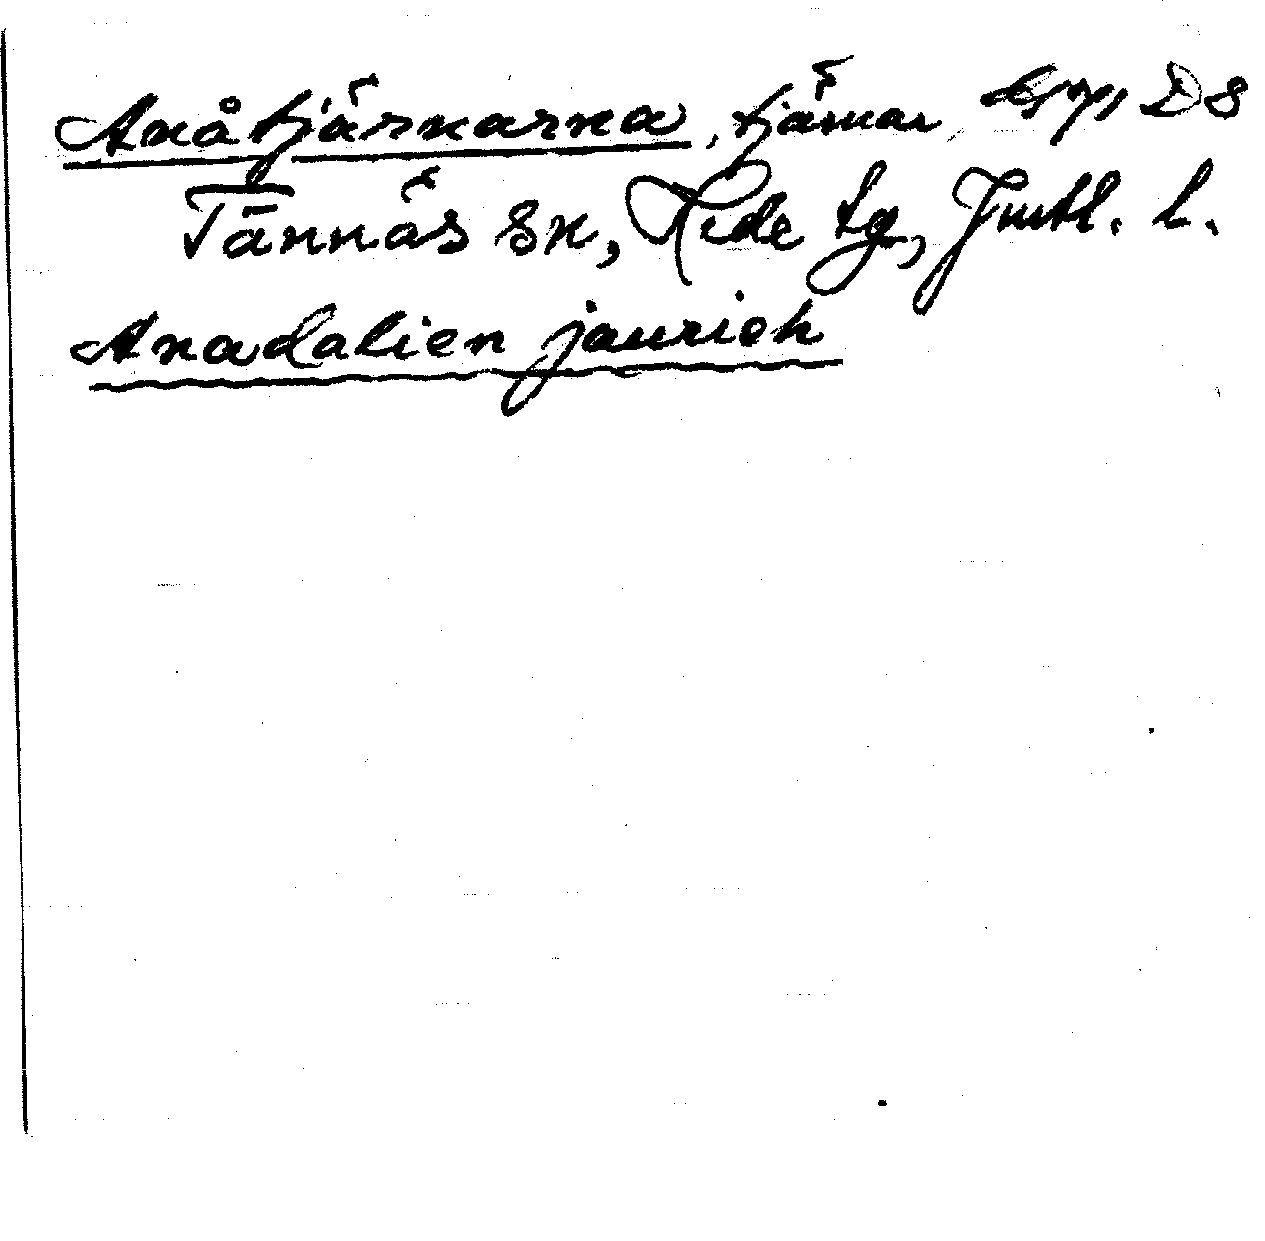 Anåtjärnarna, tjärnar, D8
Tännäs sn, Hede tg, Jmtl. l.
Anadalien jaurieh